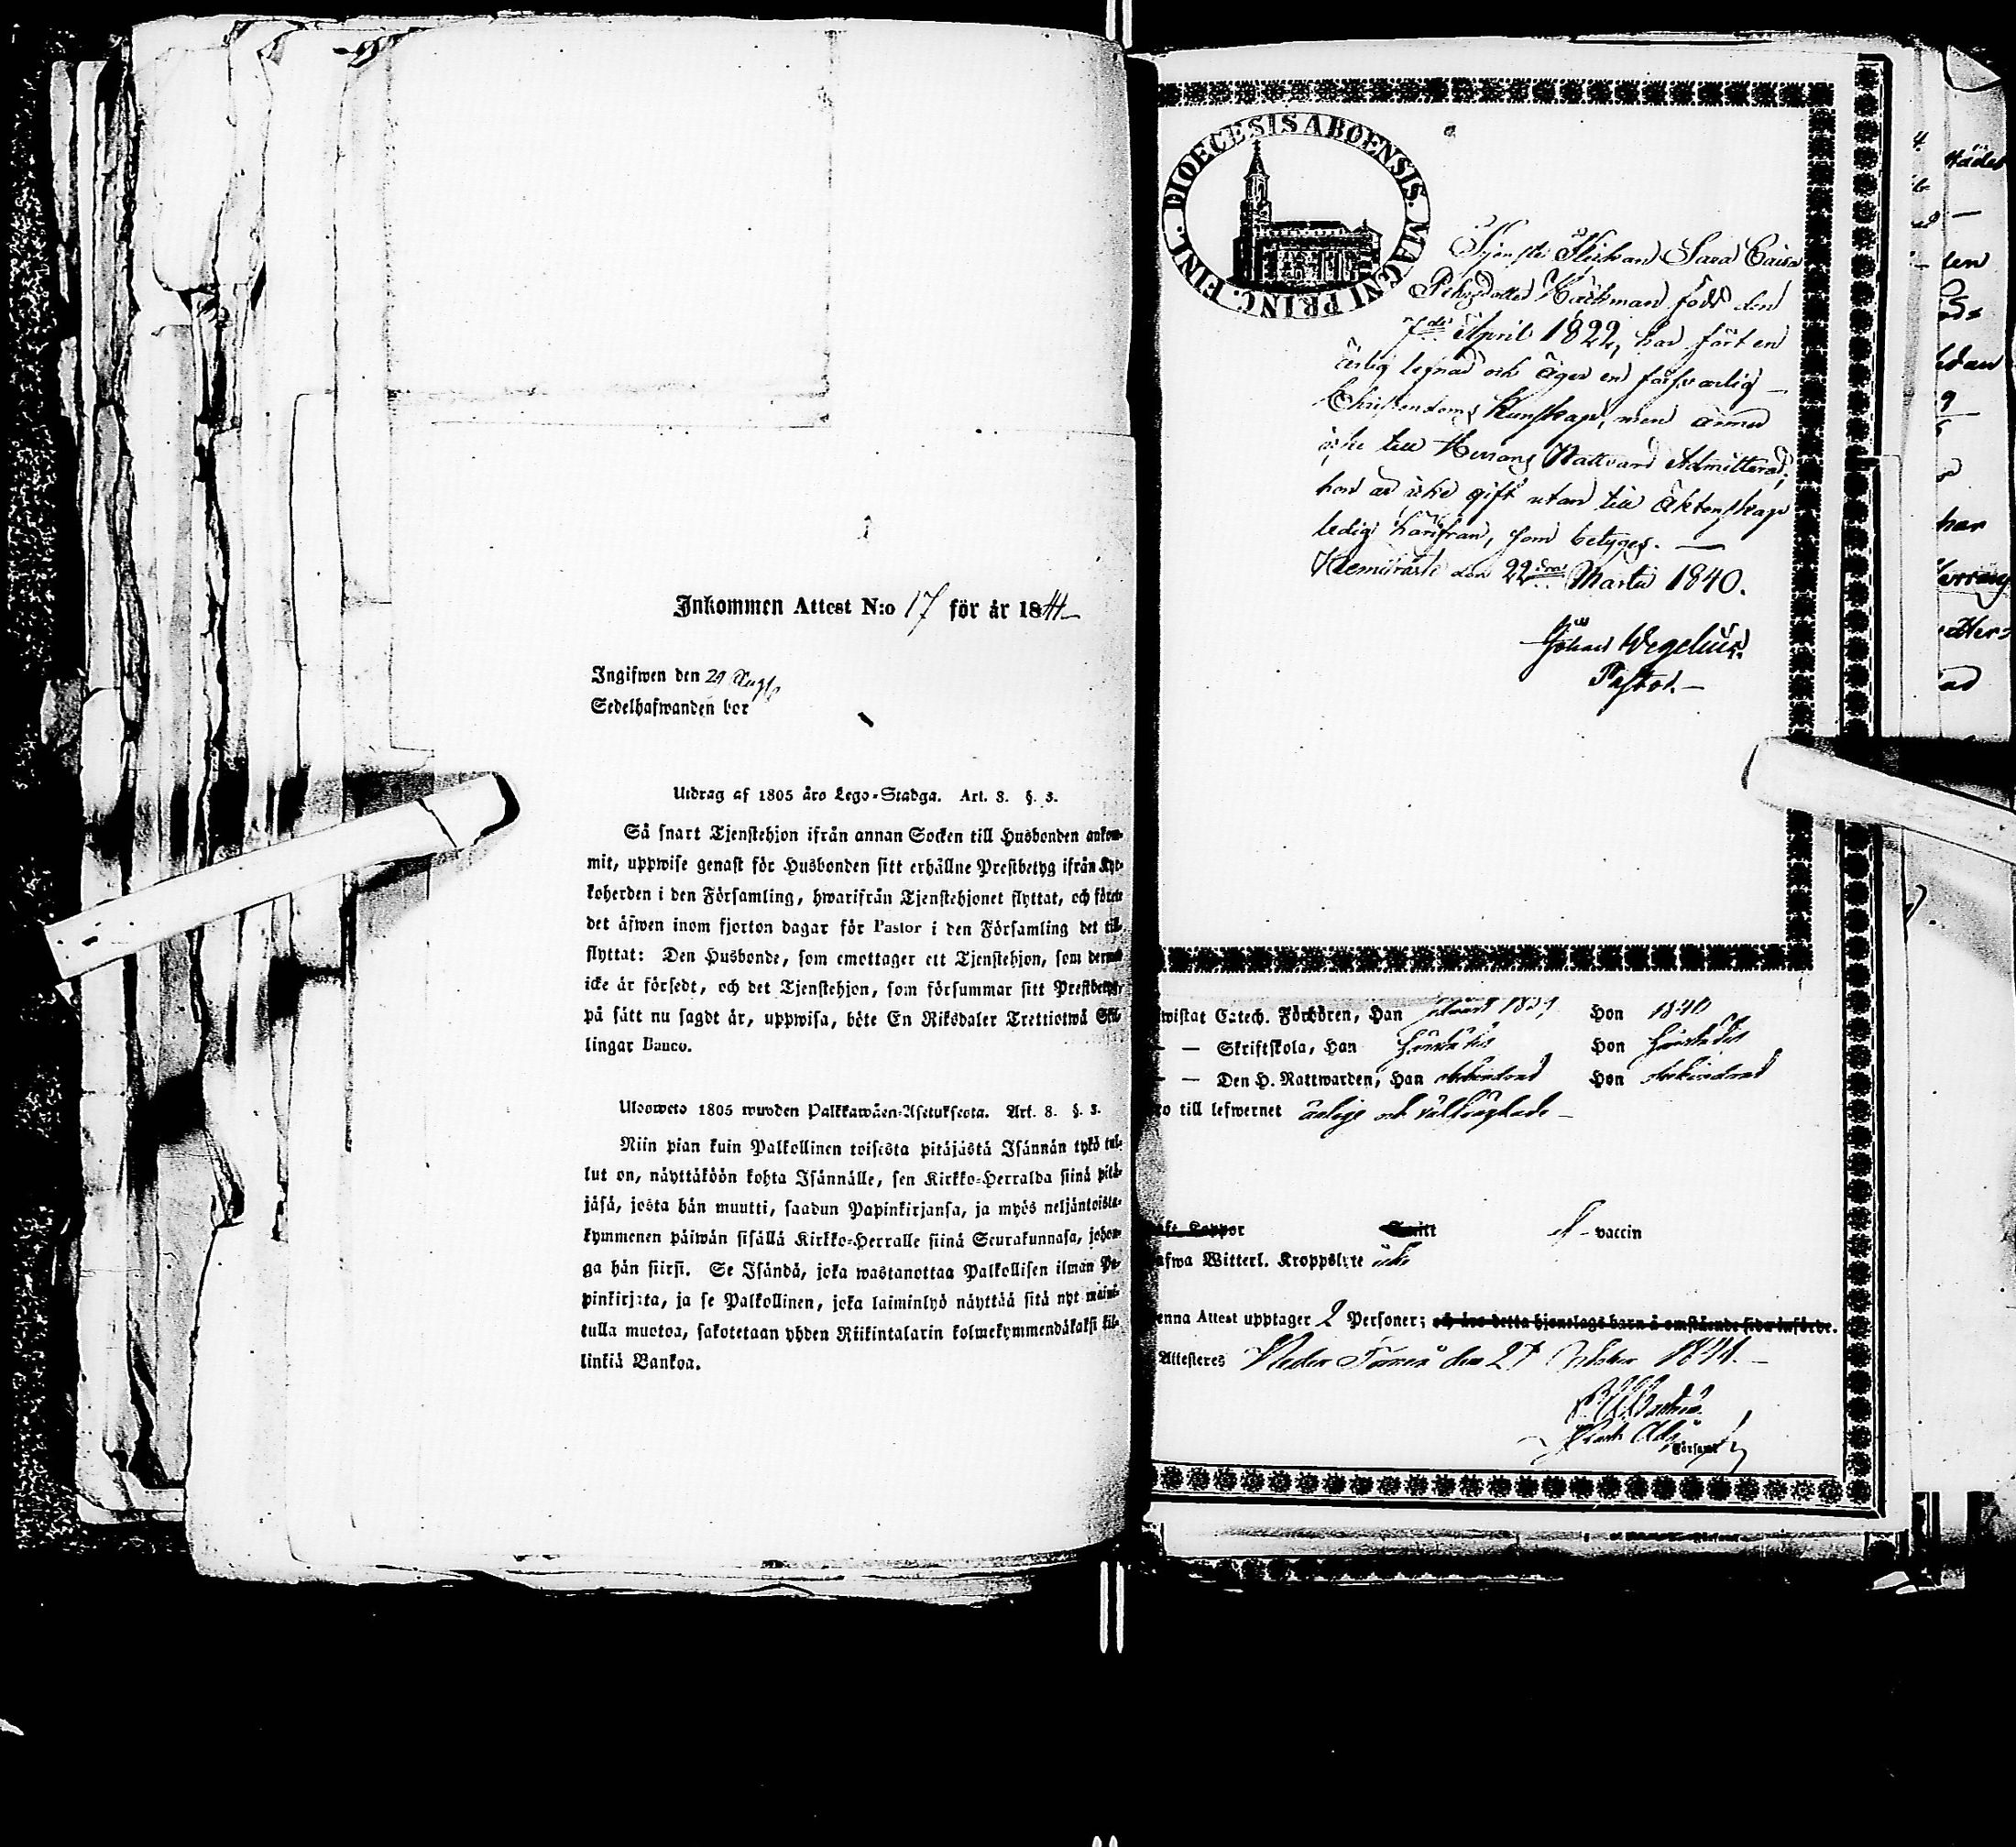 Inkommen Attest N:o 17 för år 1841
Ingifwen den 29 Augs
Sedelhafwanden bor
Utdrag af 1805 års Lego-Stadga. Art. 8. §. 3.
Så snart Tjenstehjon ifrån annan Socken till Husbonden ankom-
mit, uppwise genast för Husbonden sitt erhållne Prestbetyg ifrån Kyr-
koherden i den Församling, hwarifrån Tjenstehjonet flyttat, och förete
det äfwen inom fjorton dagar för Pastor i den Församling det till-
flyttat: Den Husbonde, som emottager ett Tjenstehjon, som dermed
icke är försedt, och det Tjenstehjon, som försummar sitt Prestbetyg,
på sätt nu sagdt är, uppwisa, böte En Riksdaler Trettiotwå Skil-
lingar Banco.
Ulosweto 1805 wuoden Palkkawäen-Asetuksesta. Art. 8. §. 3.
Niin pian kuin Palkollinen toisesta pitäjästä Isännän tykö tul-
lut on, näyttäköön kohta Isännälle, sen Kirkko-Herralda siinä pitä-
jäsä, josta hän muutti, saadun Papinkirjansa, ja myös neljäntoista-
kymmenen päiwän sisällä Kirkko-Herralle siinä Seurakunnasa, johon-
ga hän siirsi. Se Isändä, joka wastanottaa Palkollisen ilman Pa-
pinkirjata, ja se Palkollinen, joka laiminlyö näyttää sitä nyt maini-
tulla muotoa, sakotetaan yhden Riikintalarin kolmekymmendäkaksi kil-
linkiä Bankoa.
DIOECESIS ABOENSIS. MAGNI PRINC. FINL.
Tjenste Flickan Sara Caisa
Pehrsdotter Backman född den
7de April 1822, har fört en
ärlig lefnad och äger en försvarlig
Christendoms Kunskap, men ännu
icke till Herrans Nattvard Admitterad;
hon är icke gift utan till äktenskap
ledig härifrån, som betyges. —
Kemiträsk den 22dra Martii 1840.
Johan Wegelius.
Pastor. —
wistat Catech. Förhören, Han 1839 Hon 1840
— — Skriftskola, Han Hon
— — Den H. Nattwarden, Han Hon
ro till lefwernet ärlige och
aft. Koppor vaccin
afwa Witterl. Kroppslyte icke
enna Attest upptager 2 Personer; och äro detta hjonelags barn å omstående sida införde.
Attesteres Neder Torneå den 27 Oktober 1840. —
Församl